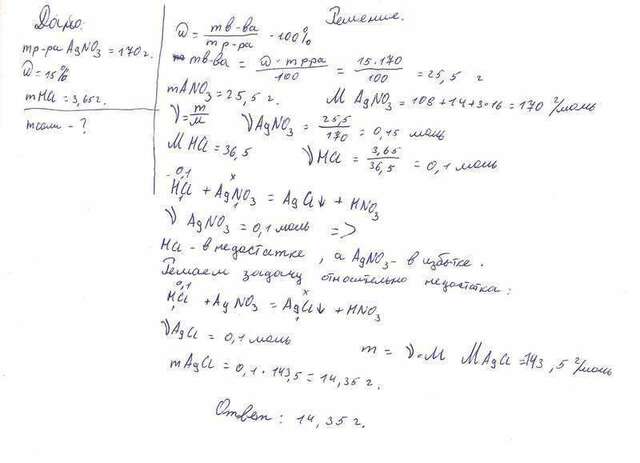 Дано:
mр-ра AgNO3 = 170 г.
ω = 15%
mHCl = 3,65г.
mсоли - ?
Решение.
ω = mв-ва / mр-ра · 100%
mв-ва = ω · mр-ра / 100 = 15 · 170 / 100 = 25,5 г
mANO3 = 25,5 г. M AgNO3 = 108 + 14 + 3·16 = 170 г/моль
ν = m/M ν AgNO3 = 25,5 / 170 = 0,15 моль
M HCl = 36,5 ν HCl = 3,65 / 36,5 = 0,1 моль
0,1 x
HCl + AgNO3 = AgCl↓ + HNO3
1 1
ν AgNO3 = 0,1 моль =>
HCl - в недостатке, а AgNO3 - в избытке.
Решаем задачу относительно недостатка:
0,1 x
HCl + AgNO3 = AgCl↓ + HNO3
1 1
ν AgCl = 0,1 моль m = ν · M MAgCl = 143,5 г/моль
mAgCl = 0,1 · 143,5 = 14,35 г.
Ответ: 14,35 г.